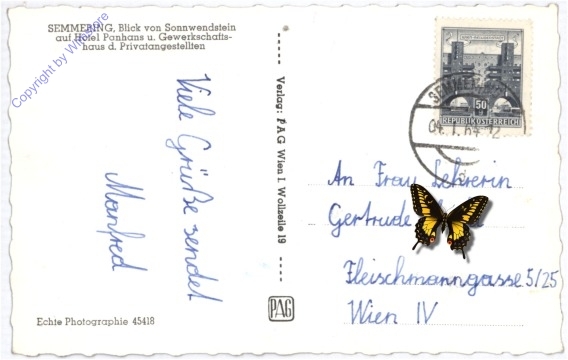 SEMMERING, Blick von Sonnwendstein
auf Hotel Panhans u. Gewerkschafts-
haus d. Privatangestellten
Viele Grüße sendet
Manfred
Echte Photographie 45418
Verlag: PAG Wien I. Wollzeile 19
PAG
50
REPUBLIK ÖSTERREICH
An Frau Lehrerin
Gertrude
Fleischmanngasse 5/25
Wien IV
Copyright by